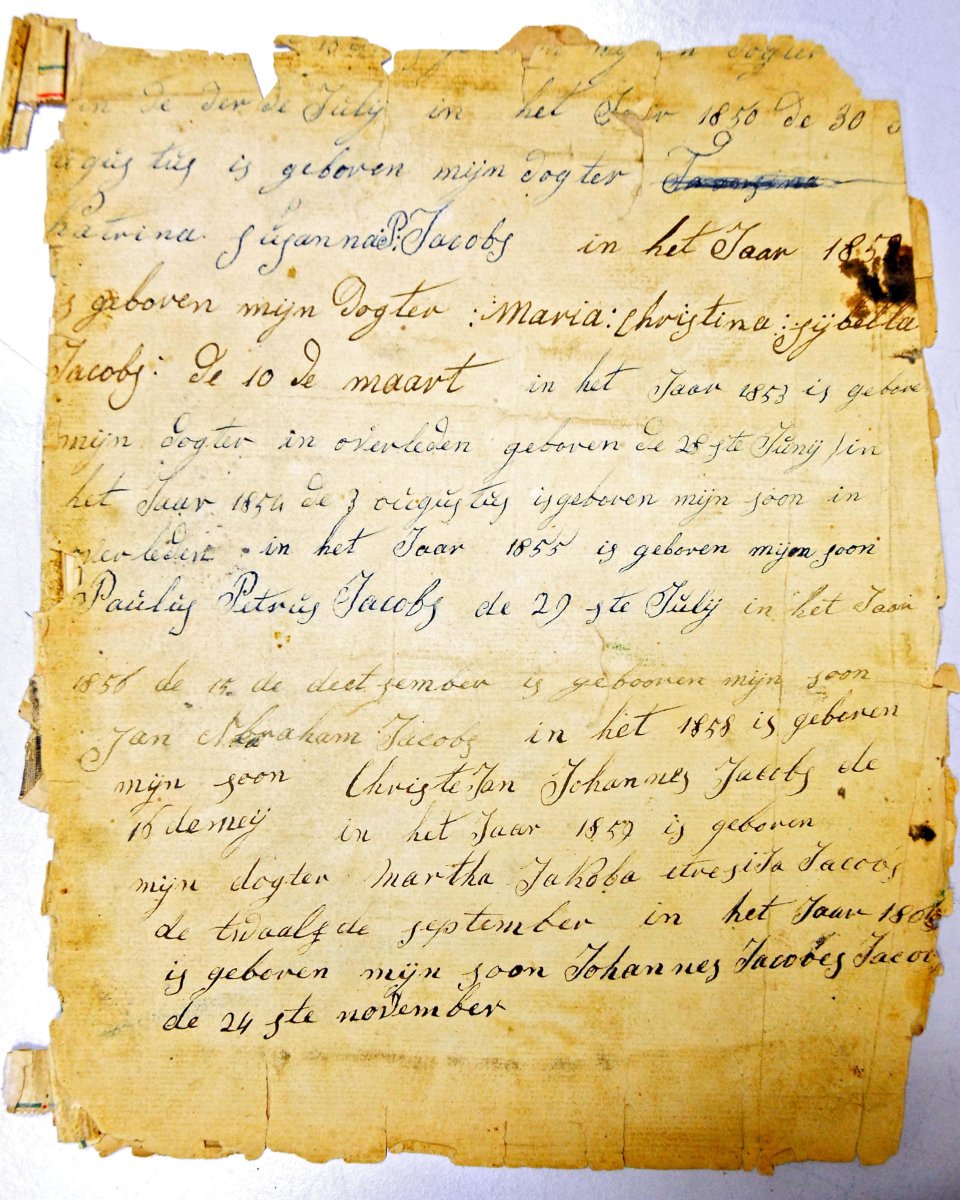 mijn dogter
in de der de Julij in het Jaar 1850 de 30
ugustus is geboren mijn dogter
Katrina susanna P: Jacobs in het Jaar
is geboren mijn Dogter : Maria: Christina: sijbella
Jacobs: de 10 de maart in het Jaar 1853 is gebore
mijn dogter in overleden geboren de 28 ste Junij in
het Jaar 1854 de 3 ougustus is geboren mijn soon in
overleden in het Jaar 1855 is geboren mijn soon
Paulus Petrus Jacobs de 29 ste Julij in het Jaar
1856 de 15 de dect sember is gebooren mijn soon
Jan Abraham Jacobs in het 1858 is geboren
mijn soon ChristeJan Johannes Jacobs de
16 de meij in het Jaar 1859 is geboren
mijn dogter Martha Jakoba Jacobs
de twaalfde september in het Jaar
is geboren mijn soon Johannes Jacobes Jacobs
de 24 ste november